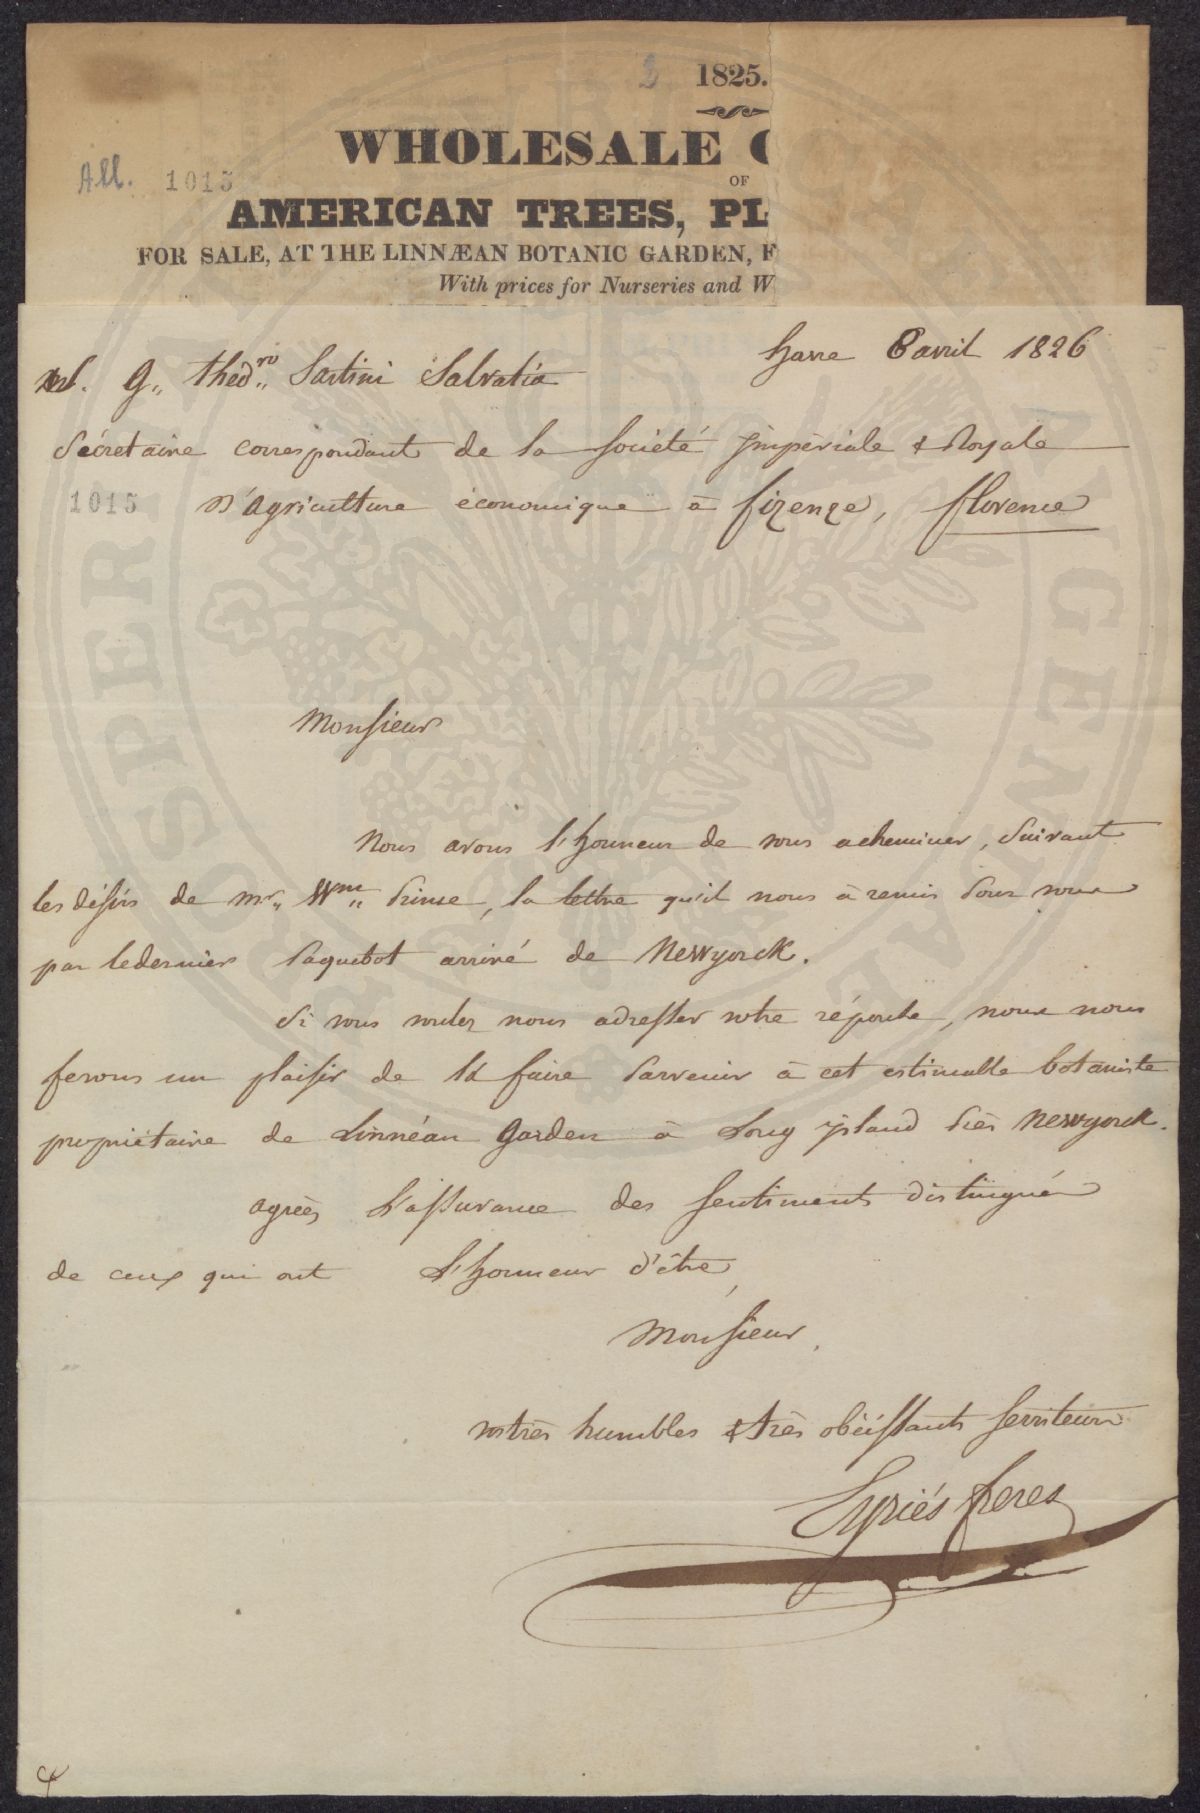 3 1825.
WHOLESALE C
All. 1015
OF
AMERICAN TREES, PL
FOR SALE, AT THE LINNÆAN BOTANIC GARDEN, F
With prices for Nurseries and W
havre 8 avril 1826
M. G,, théd,,ro Sartini Salvatia
Sécretaire correspondant de la Société impèriale & Royale
1015 D'agriculture économique à firenze, florence
Monsieur
Nous avons l'honneur de vous acheminer, Suivant
les désirs de mr,, Wm,, Prince, la lettre qu'il nous à remis pour vous
par le dernier Paquebot arrivé de Newyorck.
Si vous voulez nous adresser votre réponse, nous nous
ferons un plaisir de la faire Parvenir à cet estimable botaniste
propriétaire de Linnéan Garden à Long ysland Près Newyorck.
agréez L'assurance des sentiments distingués
de ceux qui ont L'honneur d'être,
Monsieur,
vos très humbles & très obéissants serviteurs
Eyriés freres
PROSPERITATI AUGENDAE